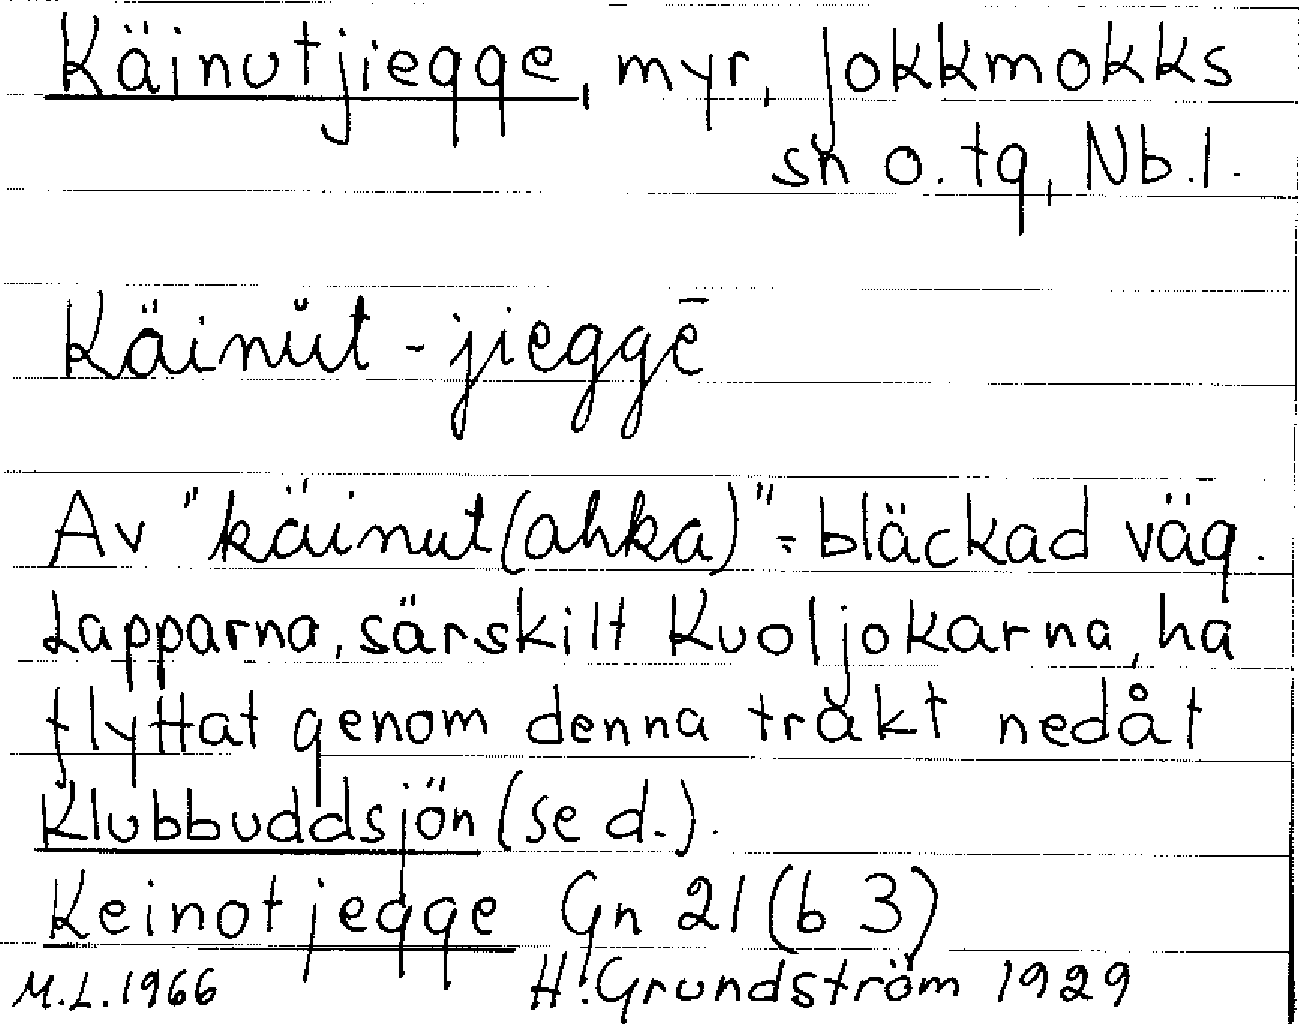 Käinutjiegge, myr, Jokkmokks
sn o. tg, Nb.l.
Käinŭt-jieggē
Av "käinut(ahka)" = bläckad väg.
Lapparna, särskilt Kuoljokarna, ha
flyttat genom denna trakt nedåt
Klubbuddsjön (se d.).
Keinotjegge Gn 21 (b 3)
M.L. 1966 H. Grundström 1929